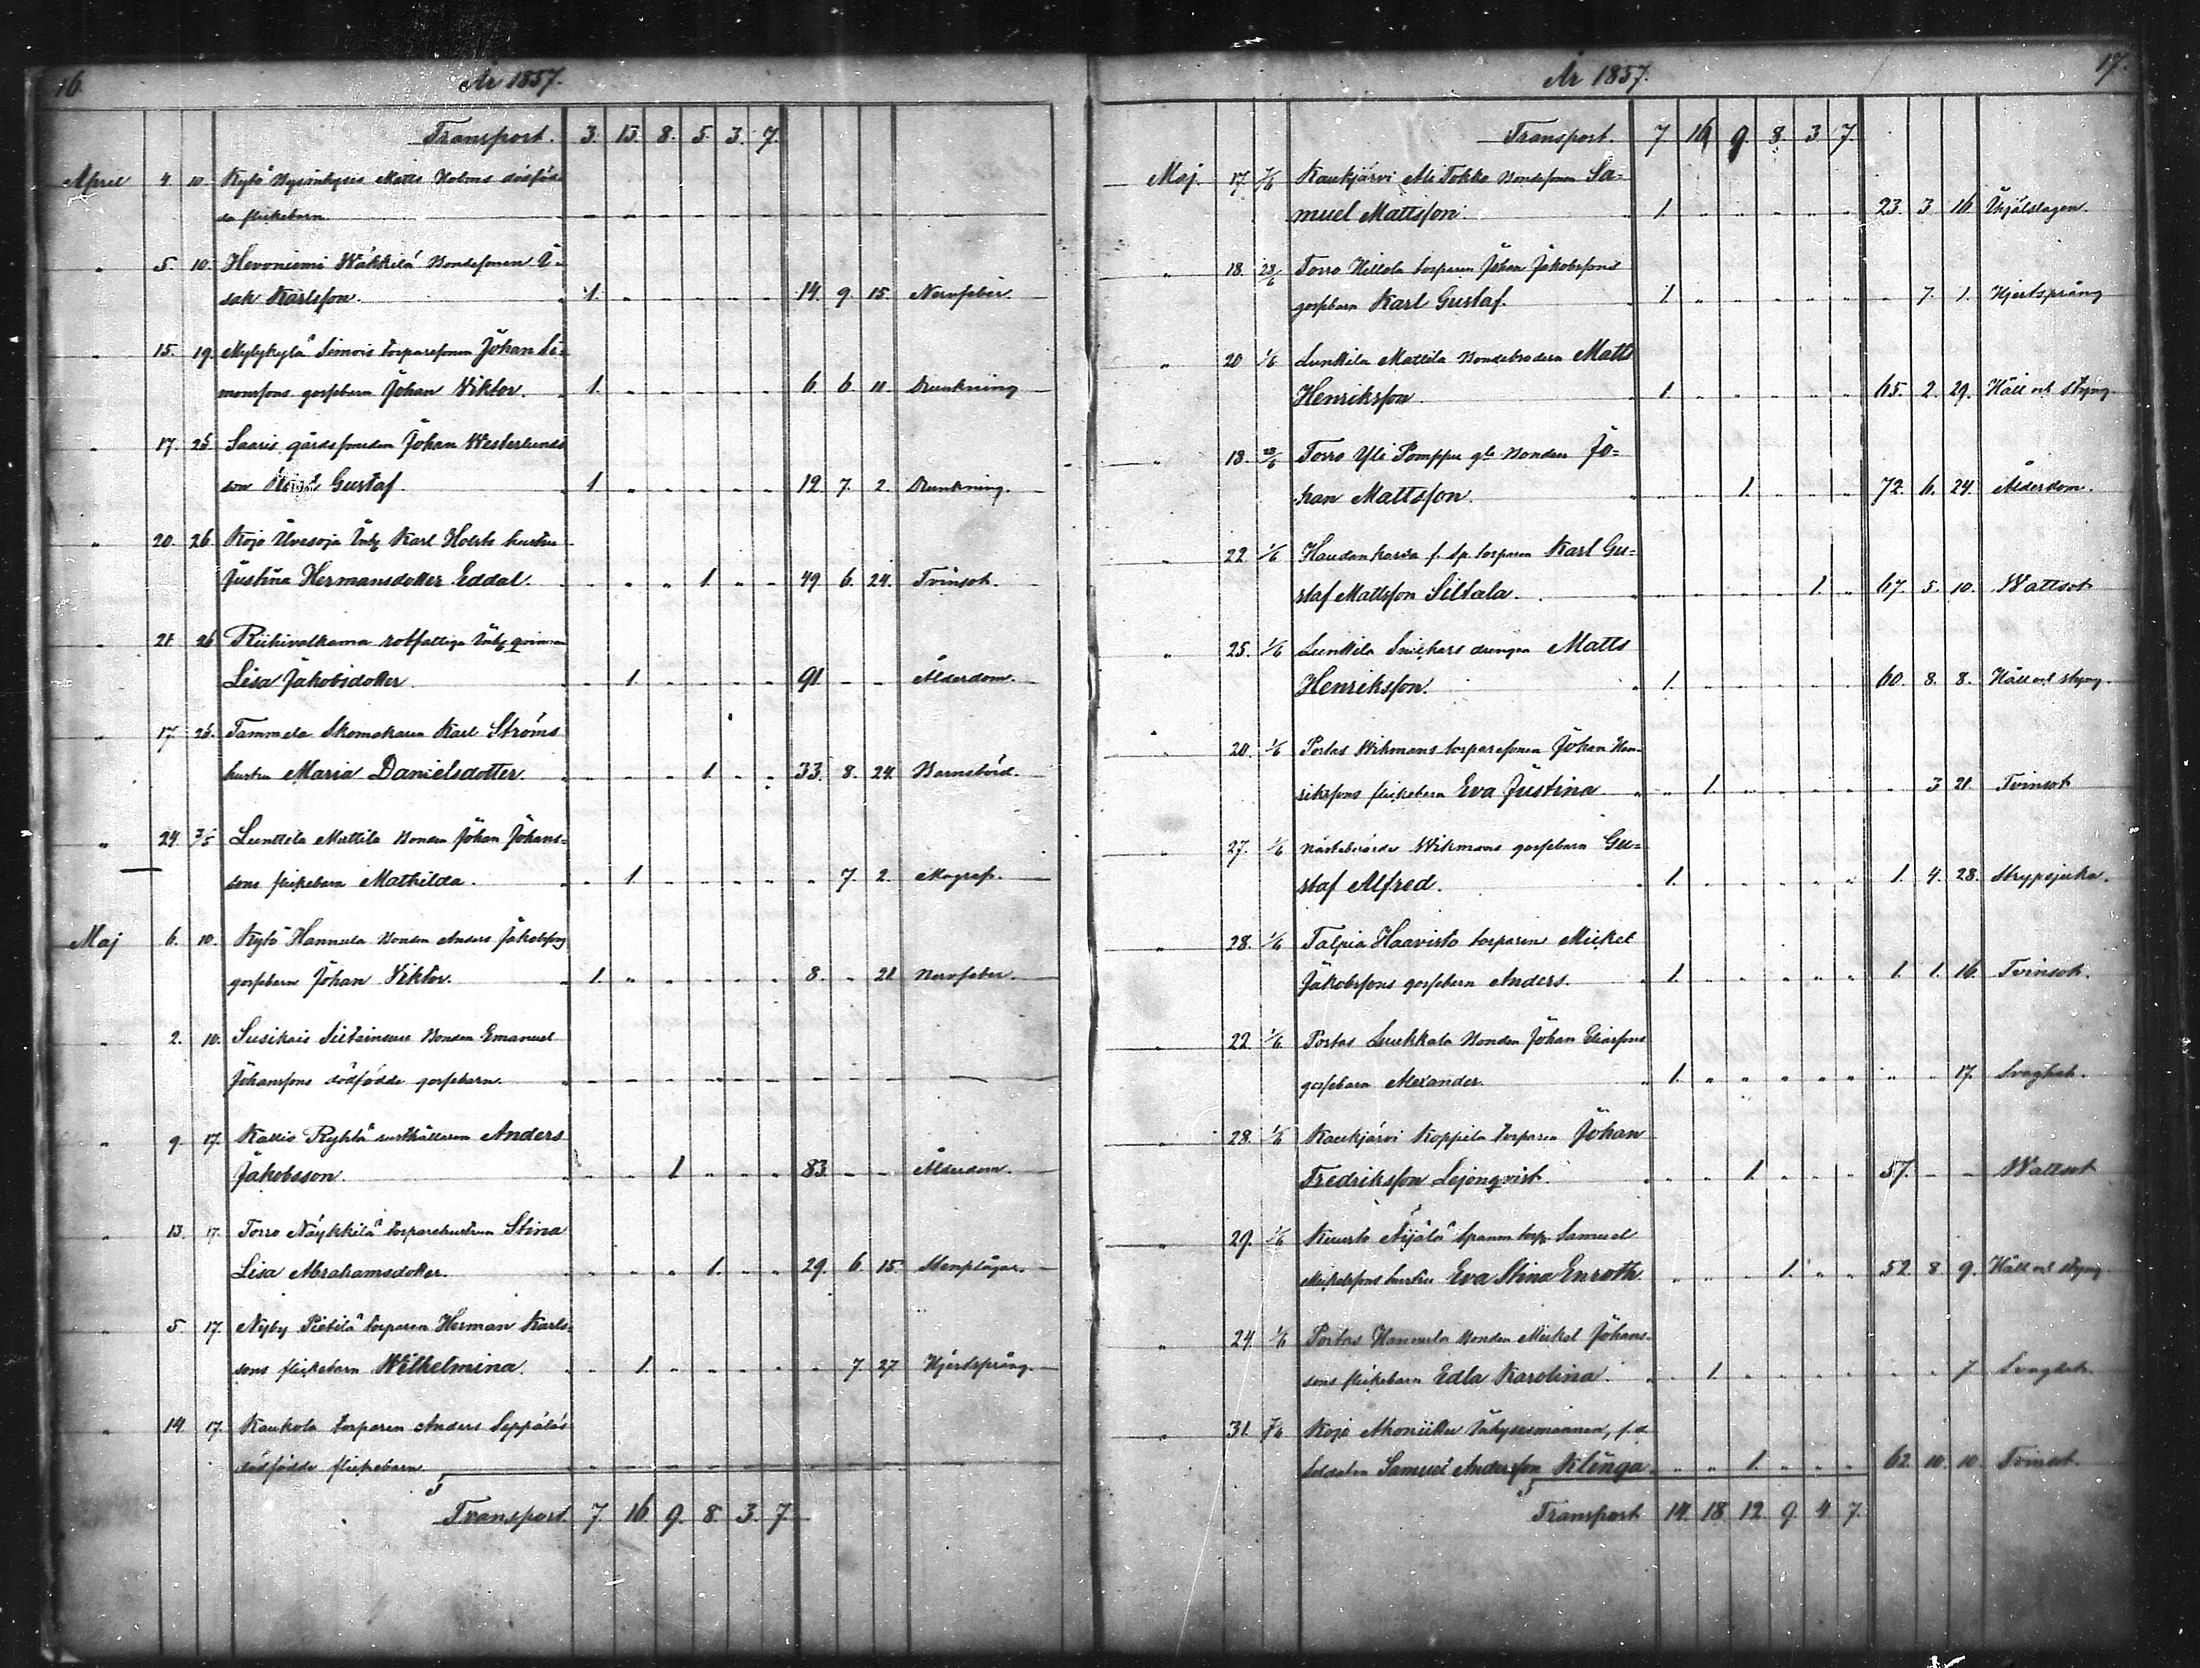 16.
År 1857.
Transport. 3. 13. 8. 5. 3. 7.
April 4. 10. Kylö Matts Holms dödföd-
da flickebarn
" 5. 10. Hevoniemi Wäkkilä Bondesonen I-
sak Karlsson. 1. 14. 9. 15. Nervfeber.
" 15. 19. Myllykylä Simois torparesonen Johan Si-
monssons gossebarn Johan Viktor. 1. 6. 6. 11. Drunkning
" 17. 25 Saaris gårdssmeden Johan Westerlunds
son Gustaf. 1. 12. 7. 2. Drunkning.
" 20. 26 Kojo Karl Holsts hustru
Justina Hermansdotter Eddal. 1. 49 6. 24. Tvinsot.
" 21 26 Riihivalkama rotfattiga Inh. qvinnan
Lisa Jakobsdotter 1. 91 Ålderdom.
" 17. 26. Tammela Skomakaren Karl Ströms
hustru Maria Danielsdotter. 1. 33. 8. 24. Barnsbörd.
" 24. 3/5 Lunkkila Mattila Bonden Johan Johans-
sons flickebarn Mathilda. 1. " 7. 2. Magref.
Maj 6. 10. Kylö Hannula Bonden Anders Jakobssons
gossebarn Johan Viktor. 1. 8. " 21 Nervfeber.
" 2. 10. Susikais Bonden Emanuel
Johanssons dödfödde gossebarn.
" 9. 17. Kallio Ryhtä rusthållaren Anders
Jakobsson. 1 83. Ålderdom.
" 13. 17. Torro Näykkilä torparehustrun Stina
Lisa Abrahamsdotter. 1. 29. 6. 15. Stenplågar.
" 5 17. Nyby Pietilä torparen Herman Karls-
sons flickebarn Wilhelmina. 1. " 7. 27 Hjertsprång.
" 14. 17. Kaukola torparen Anders Seppäläs
dödfödde flickebarn.
Transport. 7. 16. 9. 8. 3. 7.
17.
År 1857.
Transport. 7. 16 9. 8. 3 7.
Maj. 17. 7/6 Kaukjärvi Ali Tokko Bondesonen Sa-
muel Mattsson. 1. 23. 3. 16 Ihjälslagen.
" 18. 28/6 Torro Hillola torparen Johan Jakobssons
gossebarn Karl Gustaf. 1. " 7. 1. Hjertsprång
" 20 1/6 Lunkkila Mattila Bondebrodern Matts
Henriksson 1. 65. 2. 29. Håll och styng.
" 18. Torro Yli Pomppu gle Bonden Jo-
han Mattsson. 1. 72. 6. 24. Ålderdom.
" 22 1/6 Haudankorva f. sp. torparen Karl Gu-
staf Mattsson Siltala. 1. 67. 5. 10. Wattsot
" 25. 1/6 Lunkkila Snickars drengen Matts
Henriksson. 1. 60. 8. 8. Håll och styng.
" 20. 1/6 Portas Wikmans torparesonen Johan Hen-
rikssons flickebarn Eva Justina 1. " 3 21. Tvinsot
" 27. 1/6 Wikmans gossebarn Gu-
staf Alfred. 1. 1. 4. 28. Strypsjuka.
" 28. 1/6 Talpia Haavisto torparen Mickel
Jakobssons gossebarn Anders. 1. 1. 1. 16. Tvinsot.
" 22. 1/6 Portas Luukkala Bonden Johan Eliassons
gossebarn Alexander. 1. " " 17. Svaghet.
" 28. 1/6 Kaukjärvi Koppila torparen Johan
Fredriksson Lejonqvist. 1. 57. Wattsot
" 29. 1/6 Kuusto Äijälä spanm. torp. Samuel
Mickelssons hustru Eva Stina Enroth 1. 52. 8. 9. Håll och styng.
" 24. 1/6 Portas Hannula Bonden Mickel Johans-
sons flickebarn Edla Karolina. 1 " " 7. Svaghet.
" 31. 7/6 Kojo Inhysesmannen, f.d.
soldaten Samuel Andersson Klinga. 1. 62. 10. 10. Tvinsot.
Transport 14. 18. 12. 9. 4. 7.